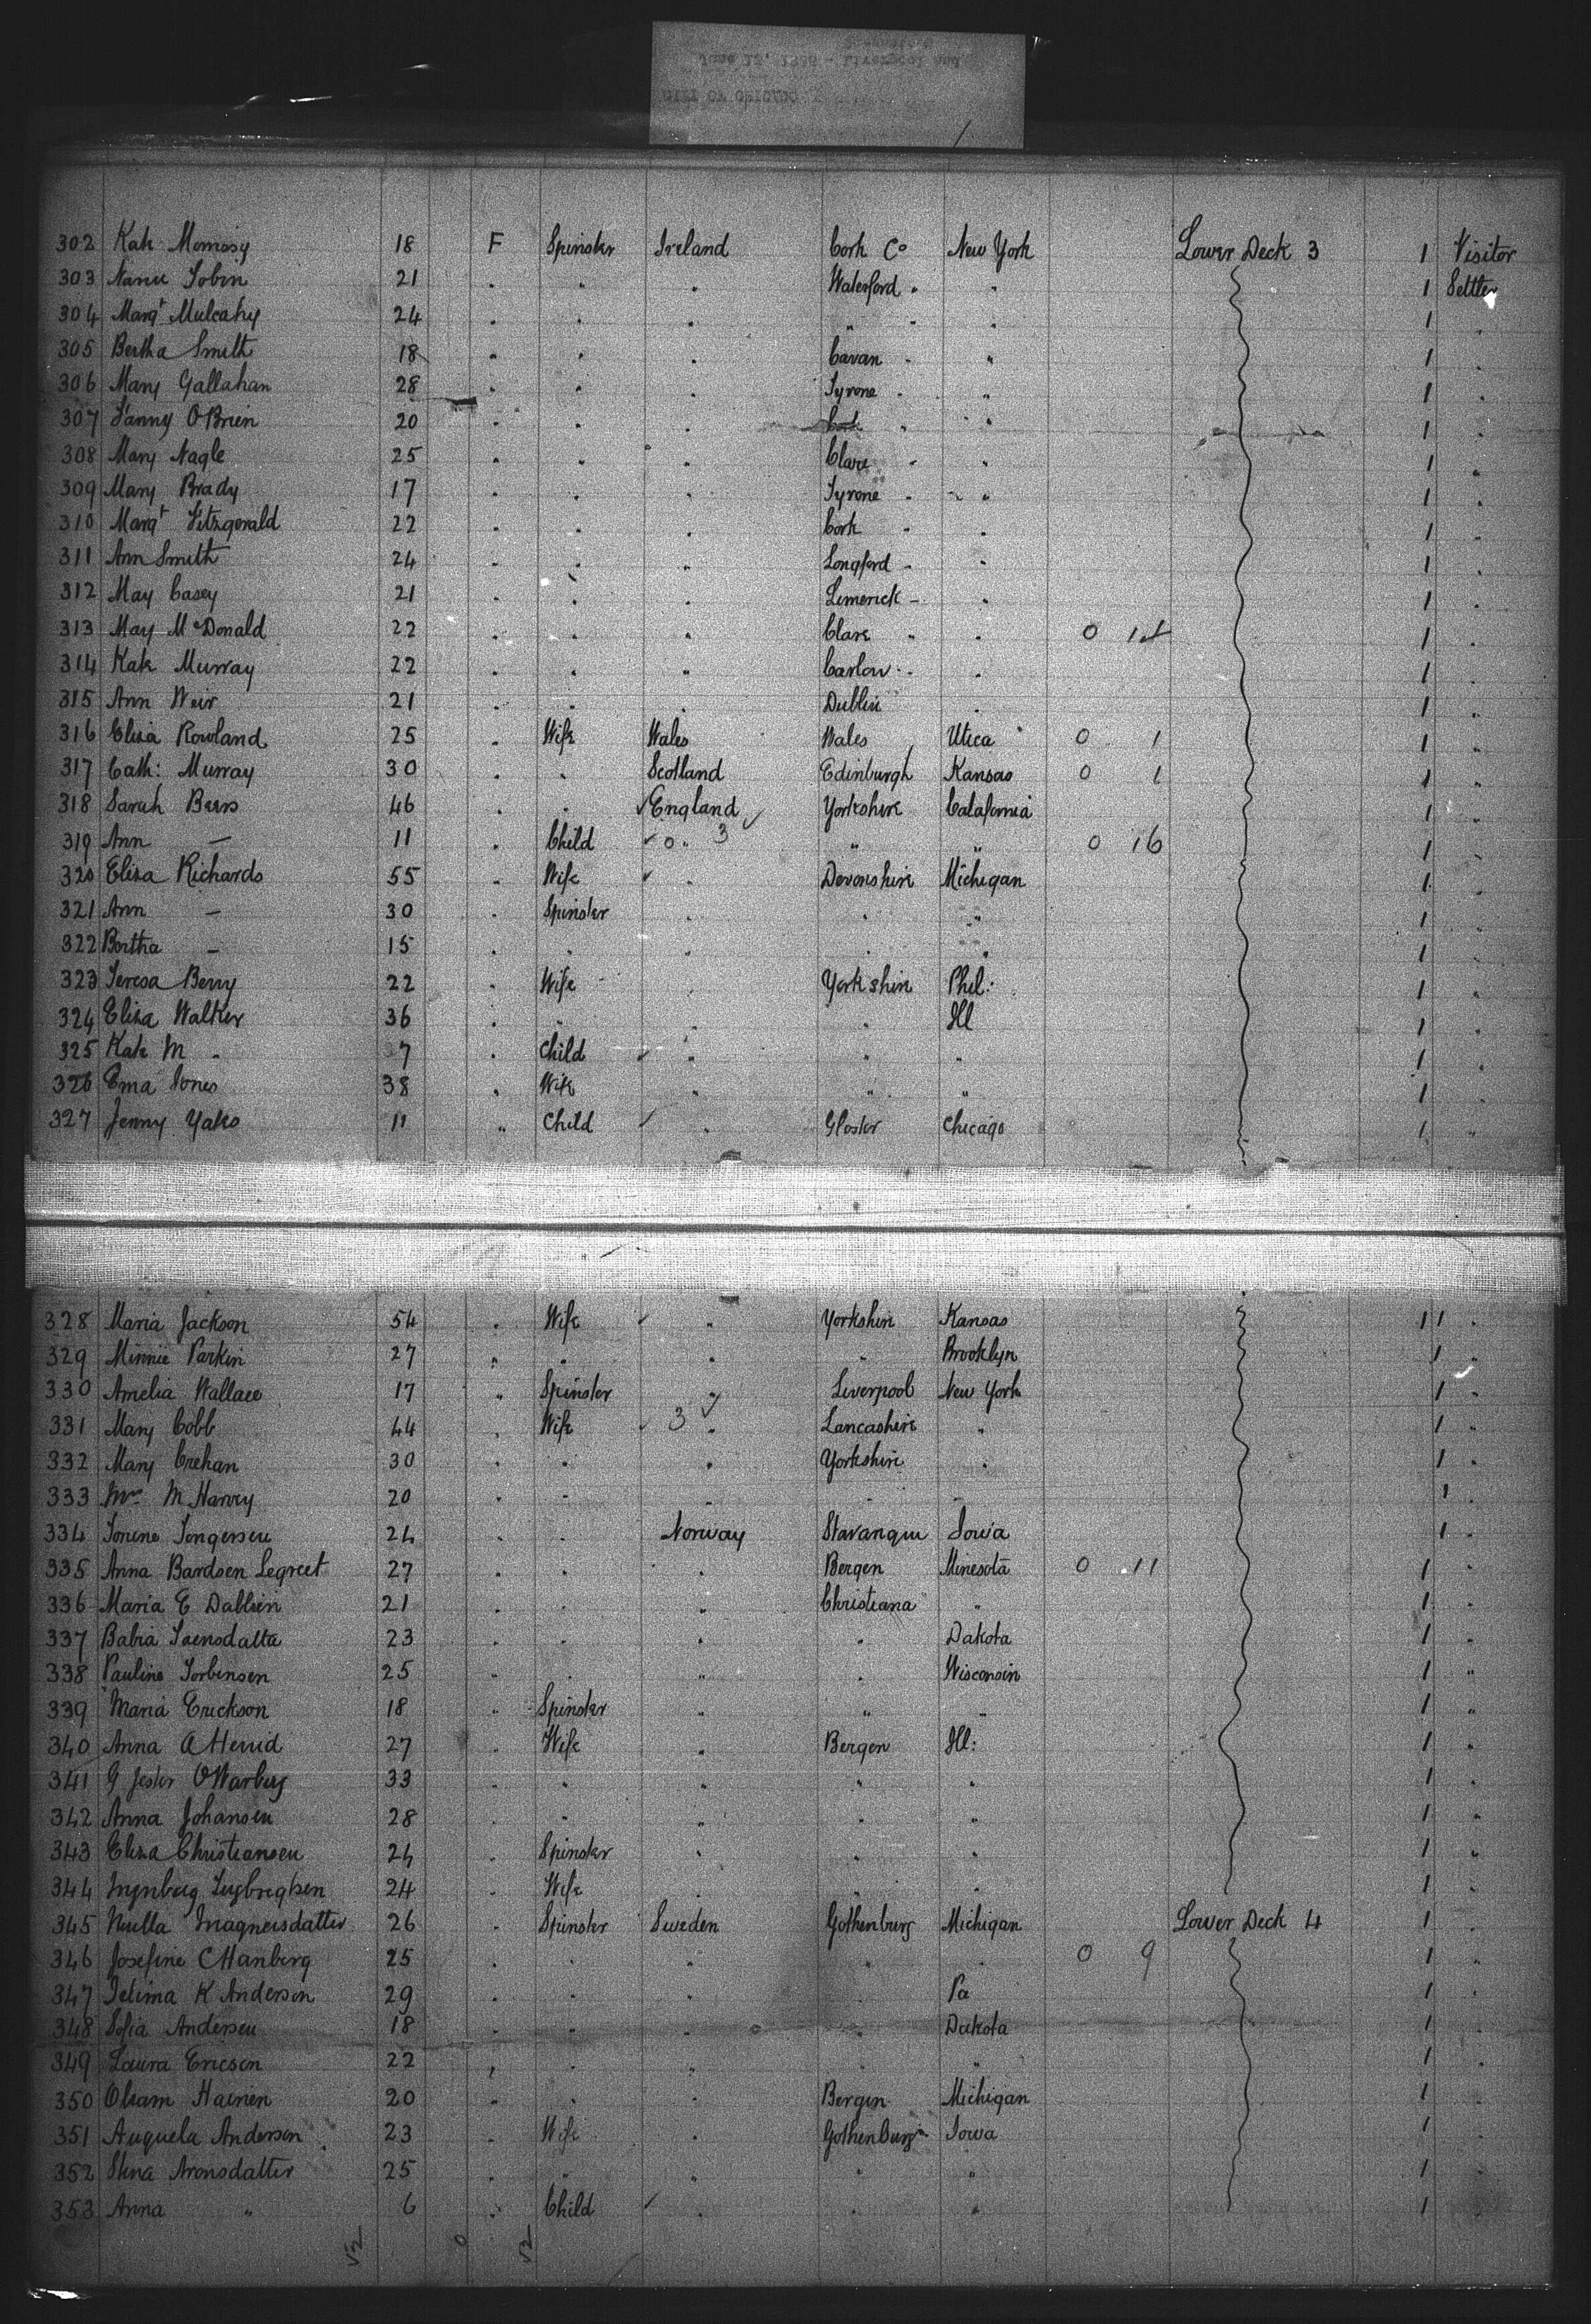 302 Kate Morrissy 18 F Spinster Ireland Cork Co New York Lower Deck 3 1 Visitor
303 Nanie Tobin 21 " " " Waterford " " 1 Settler
304 Margt Mulcahy 24 " " " " " " 1 "
305 Bertha Smith 18 " " " Cavan " " 1 "
306 Mary Gallahan 28 " " " Tyrone " " 1 "
307 Fanny O'Brien 20 " " " Cork " " 1 "
308 Mary Nagle 25 " " " Clare " " 1 "
309 Mary Brady 17 " " " Tyrone " " 1 "
310 Margt Fitzgerald 22 " " " Cork " " 1 "
311 Ann Smith 24 " " " Longford " " 1 "
312 May Casey 21 " " " Limerick " " 1 "
313 May McDonald 22 " " " Clare " " 0 1 1 "
314 Kate Murray 22 " " " Carlow " " 1 "
315 Ann Weir 21 " " " Dublin " 1 "
316 Eliza Rowland 25 " Wife Wales Wales Utica 0 1 1 "
317 Cath: Murray 30 " " Scotland Edinburgh Kansas 0 1 1 "
318 Sarah Beers 46 " " England Yorkshire Calafornia 1 "
319 Ann — 11 " Child 0 " 3 " " 0 16 1 "
320 Eliza Richards 55 " Wife " Devonshire Michigan 1 "
321 Ann — 30 " Spinster " " " 1 "
322 Bertha — 15 " " " " " 1 "
323 Teresa Berry 22 " Wife " Yorkshire Phil: 1 "
324 Eliza Walker 36 " " " " Ill 1 "
325 Kate M " 7 " Child " " " 1 "
326 Ema Jones 38 " Wife " " " 1 "
327 Jenny Yates 11 " Child " Gloster Chicago 1 "
328 Maria Jackson 54 " Wife " Yorkshire Kansas 1 1 "
329 Minnie Parkin 27 " " " " Brooklyn 1 "
330 Amelia Wallace 17 " Spinster " Liverpool New York 1 "
331 Mary Cobb 44 " Wife 3 " Lancashire " 1 "
332 Mary Crehan 30 " " " Yorkshire " 1 "
333 Mrs M Harvey 20 " " " " " 1 "
334 Tongersen 24 " " Norway Iowa 1 "
335 Anna Bardsen Legreet 27 " " " Bergen Minesota 0 11 1 "
336 Maria E Dablien 21 " " " Christiana " 1 "
337 23 " " " " Dakota 1 "
338 Pauline Torbensen 25 " " " " Wisconsin 1 "
339 Maria Erickson 18 " Spinster " " " 1 "
340 Anna 27 " Wife " Bergen Ill: 1 "
341 G 33 " " " " " 1 "
342 Anna Johansen 28 " " " " " 1 "
343 Eliza Christiansen 24 " Spinster " " " 1 "
344 24 " Wife " " " 1 "
345 Magneisdatter 26 " Spinster Sweden Gothenburg Michigan Lower Deck 4 1 "
346 Josefine C Hanberg 25 " " " " " 0 9 1 "
347 K Anderson 29 " " " " Pa 1 "
348 Sofia Andersen 18 " " " " Dakota 1 "
349 Laura Ericson 22 " " " " " 1 "
350 20 " " " Bergen Michigan 1 "
351 Anderson 23 " Wife " Gothenburg Iowa 1 "
352 Stina Aronsdatter 25 " " " " " 1 "
353 Anna " 6 " Child " " " 1 "